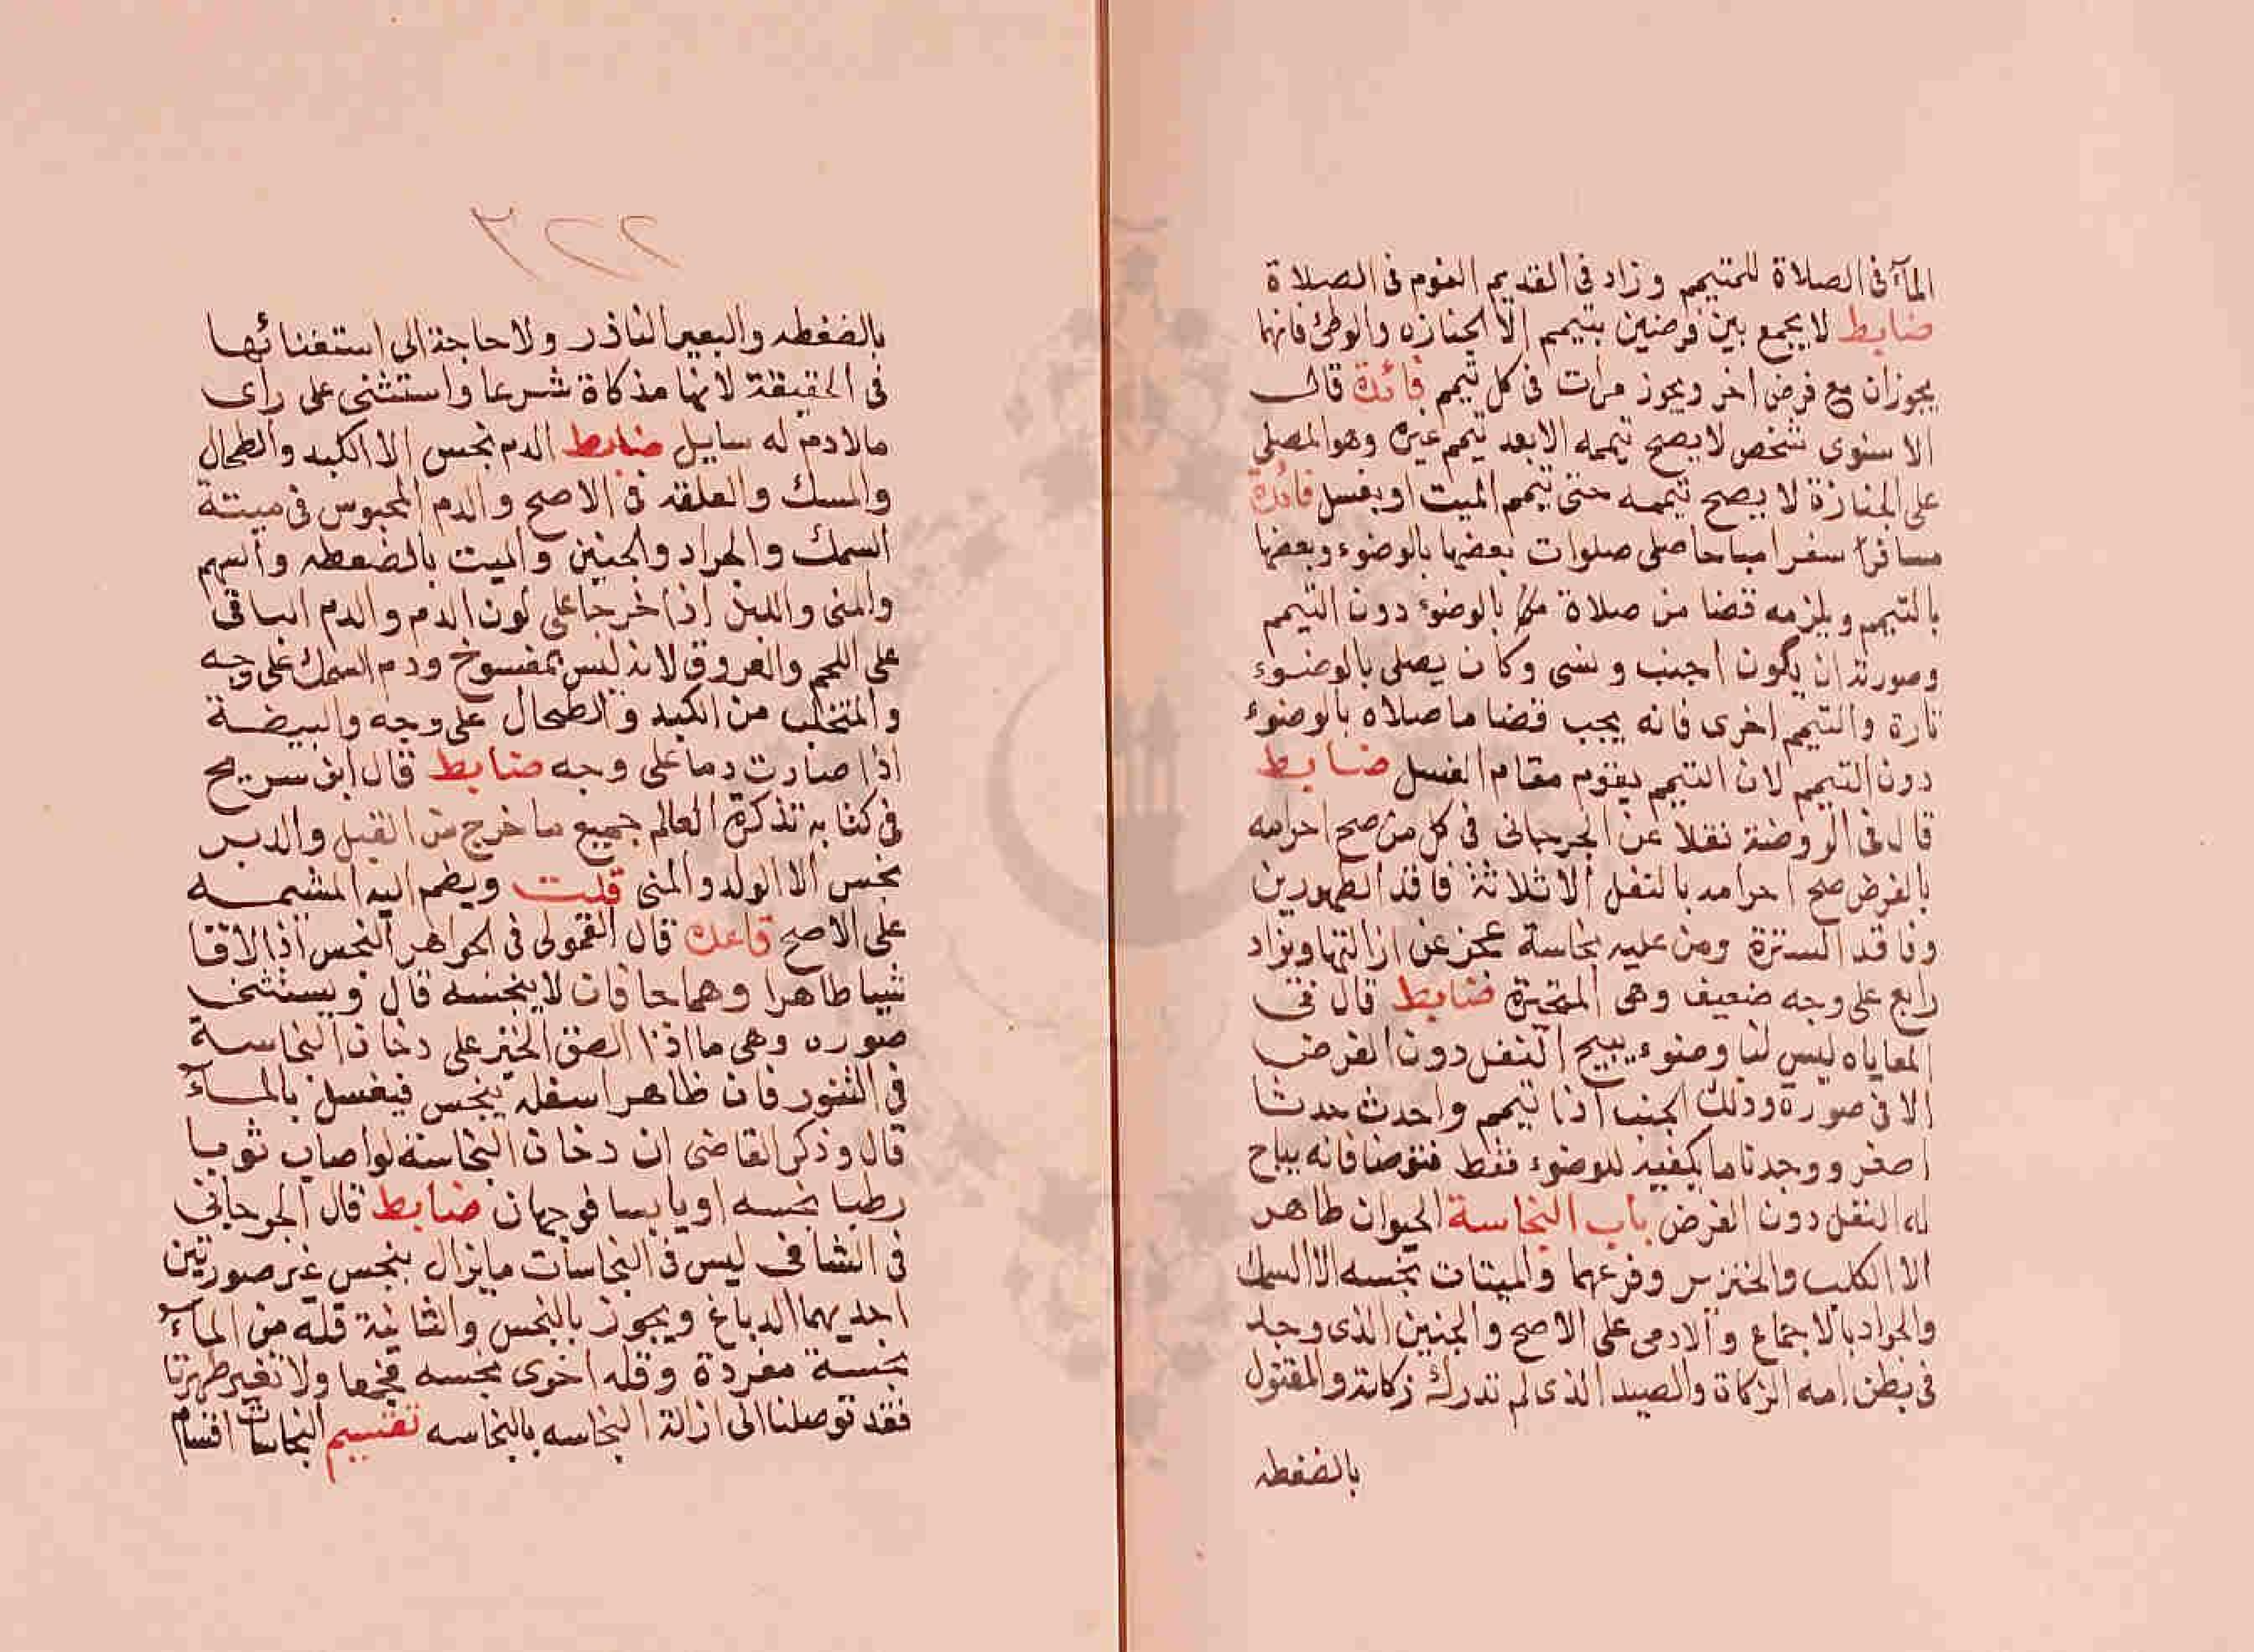 المآء في الصلاة للمتيمم وزاد في القديم النوم في الصلاة
ضابط لا يجمع بين فرضين بتيمم الا الجنازه والوطئ فانهما
يجوزان مع فرض اخر ويجوز مرات في كل تيمم فائدة قال
الاسنوى شخص لا يصح تيممه الا بعد تيمم غيره وهو المصلى
على الجنازة لا يصح تيممه حتى تيمم الميت او يغسل فائدة
مسافرا سفرا مباحا صلى صلوات بعضها بالوضوء وبعضها
بالتيمم ويلزمه قضا من صلاة بالوضوء دون التيمم
وصورته ان يكون اجنب ونسى وكان يصلى بالوضوء
تارة والتيمم اخرى فانه يجب قضا ما صلاه بالوضوء
دون التيمم لان التيمم يقوم مقام الغسل ضابط
قال في الروضة نقلا عن الجرجانى في كل من صح احرامه
بالفرض صح احرامه بالنفل الا ثلاثة فاقد الطهورين
وفاقد السترة ومن عليه نجاسة عجز عن ازالتها ويزاد
رابع على وجه ضعيف وهى المتحيرة ضابط قال في
المعاياه ليس لنا وضوء يبيح النفل دون الفرض
الا في صورة وذلك الجنب اذا تيمم واحدث حدثا
اصغر ووجدنا ما يكفيه للوضوء فقط فتوضا فانه يباح
له النفل دون الفرض باب النجاسة الحيوان طاهر
الا الكلب والخنزير وفرعهما والميتات نجسه الا السمك
والجراد بالاجماع والادمى على الاصح والجنين الذى وجد
في بطن امه الزكاة والصيد الذى لم تدرك زكاته والمقتول
بالضغطه
٢٢٣
بالضغطه والبعير الناذر ولا حاجة الى استغنائها
في الحقيقة لانها مذكاة شرعا واستثنى على راى
مالادم له سايل ضابط الدم نجس الا الكبد والطحال
والمسك والعلقه في الاصح والدم المحبوس في ميتة
السمك والجراد والجنين والميت بالضغطه والسهم
والمنى واللبن اذا خرجا على لون الدم والدم الباقى
على اللحم والعروق لانه ليس بمفسوخ ودم السمك على وجه
والمتخلب من الكبد والطحال على وجه والبيضة
اذا صارت دما على وجه ضابط قال ابن سريج
في كتابه تذكرة العالم جميع ما خرج من القبل والدبر
نجس الا الولد والمنى قلت ويضم اليه المشيمه
على الاصح قاعده قال القمولى في الجواهر النجس اذا لاقا
شيا طاهرا وهما جافان لا ينجسه قال ويستثنى
صوره وهى ما اذا الصق الخبز على دخان النجاسة
في التنور فان ظاهر اسفله ينجس فيغسل بالمآء
قال وذكر القاضى ان دخان النجاسة لو اصاب ثوبا
رطبا نجسه او يابسا فوجهان ضابط قال الجرجانى
في الشافى ليس في النجاسات ما يزال بنجس غير صورتين
احديهما الدباغ ويجوز بالنجس والثانية قله من المآء
نجسة مفردة وقله اخرى نجسه فجمعا ولا تغير طهرتا
فقد توصلنا الى ازالة النجاسه بالنجاسه تقسيم النجاسات اقسام